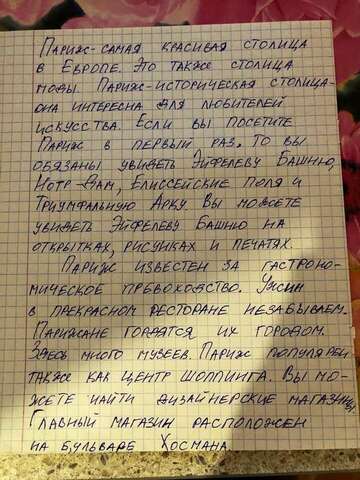 Париж-самая красивая столица
в Европе. Это также столица
моды. Париж-историческая столица-
она интересна для любителей
искусства. Если вы посетите
Париж в первый раз, то вы
обязаны увидеть Эйфелеву Башню,
Нотр-Дам, Елиссейские поля и
Триумфальную Арку. Вы можете
увидеть Эйфелеву Башню на
открытках, рисунках и печатях.
Париж известен за гастроно-
мическое превоходство. Ужин
в прекрасном ресторане незабываем.
Парижане гордятся их городом.
Здесь много музеев. Париж популярен
также как центр шоппинга. Вы мо-
жете найти дизайнерские магазины
Главный магазин расположен
на бульваре Хосмана.